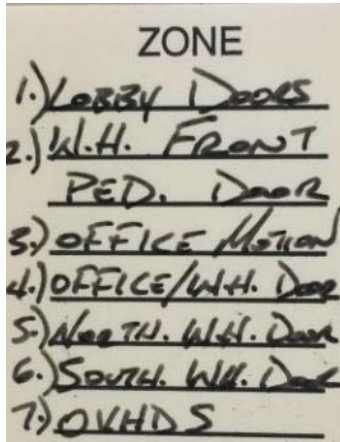 ZONE
1.) LOBBY DOORS
2.) W.H. FRONT
PED. DOOR
3.) OFFICE MOTION
4.) OFFICE/W.H. DOOR
5.) NORTH. W.H. DOOR
6.) SOUTH. W.H. DOOR
7.) OVHDS